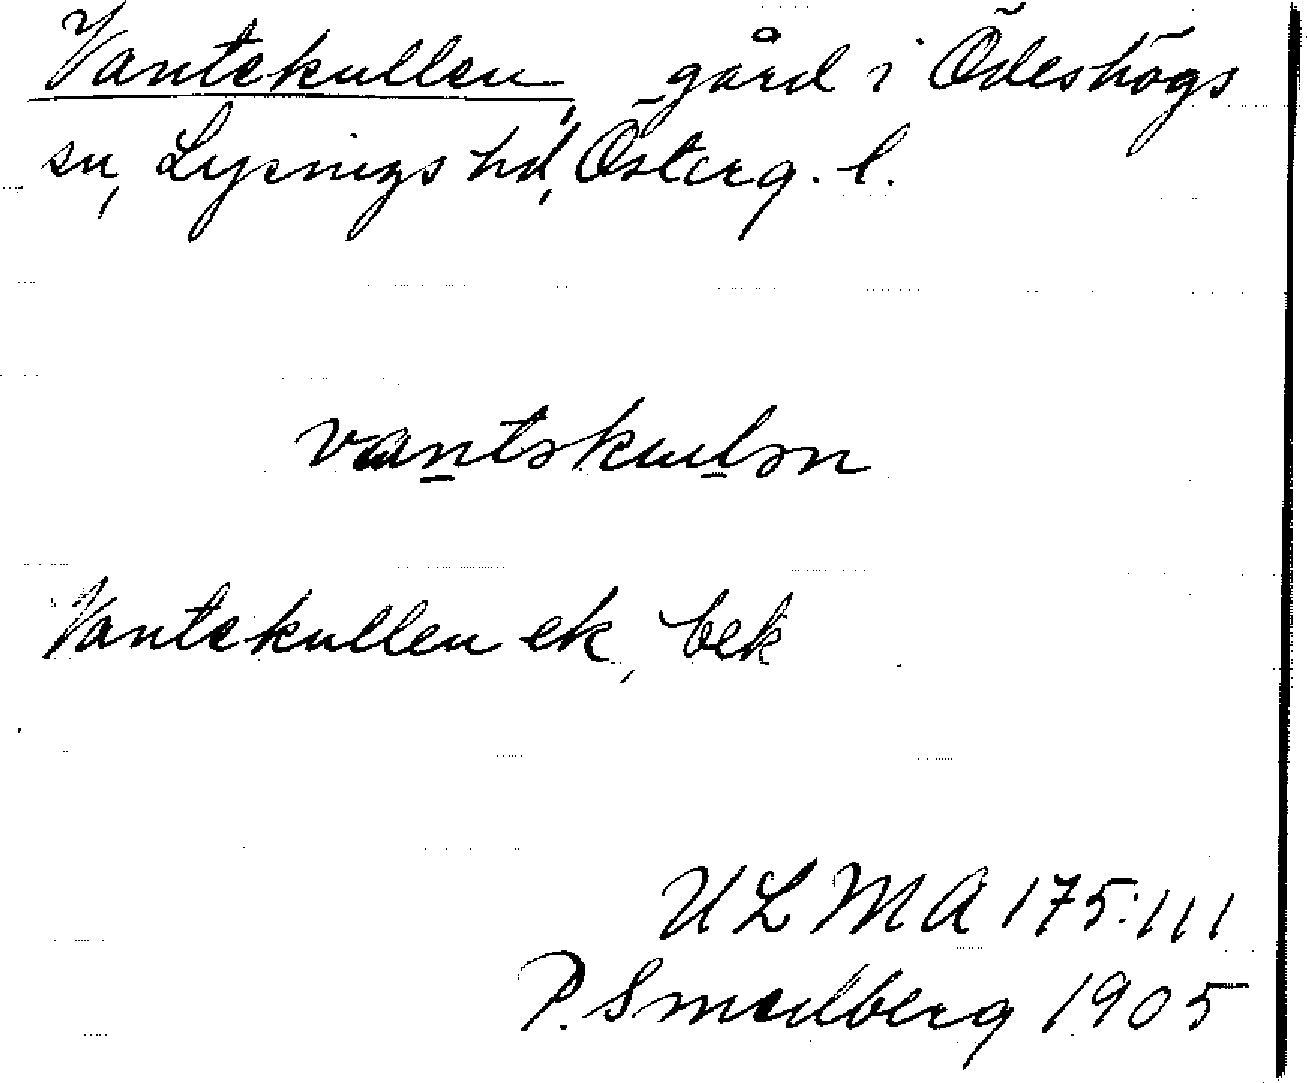 Vantekullen, gård i Ödeshögs
sn, Lysings hd, Österg. l.
vantəkulən
Vantekullen ek, bek
ULMA 175:111
P. Smedberg 1905